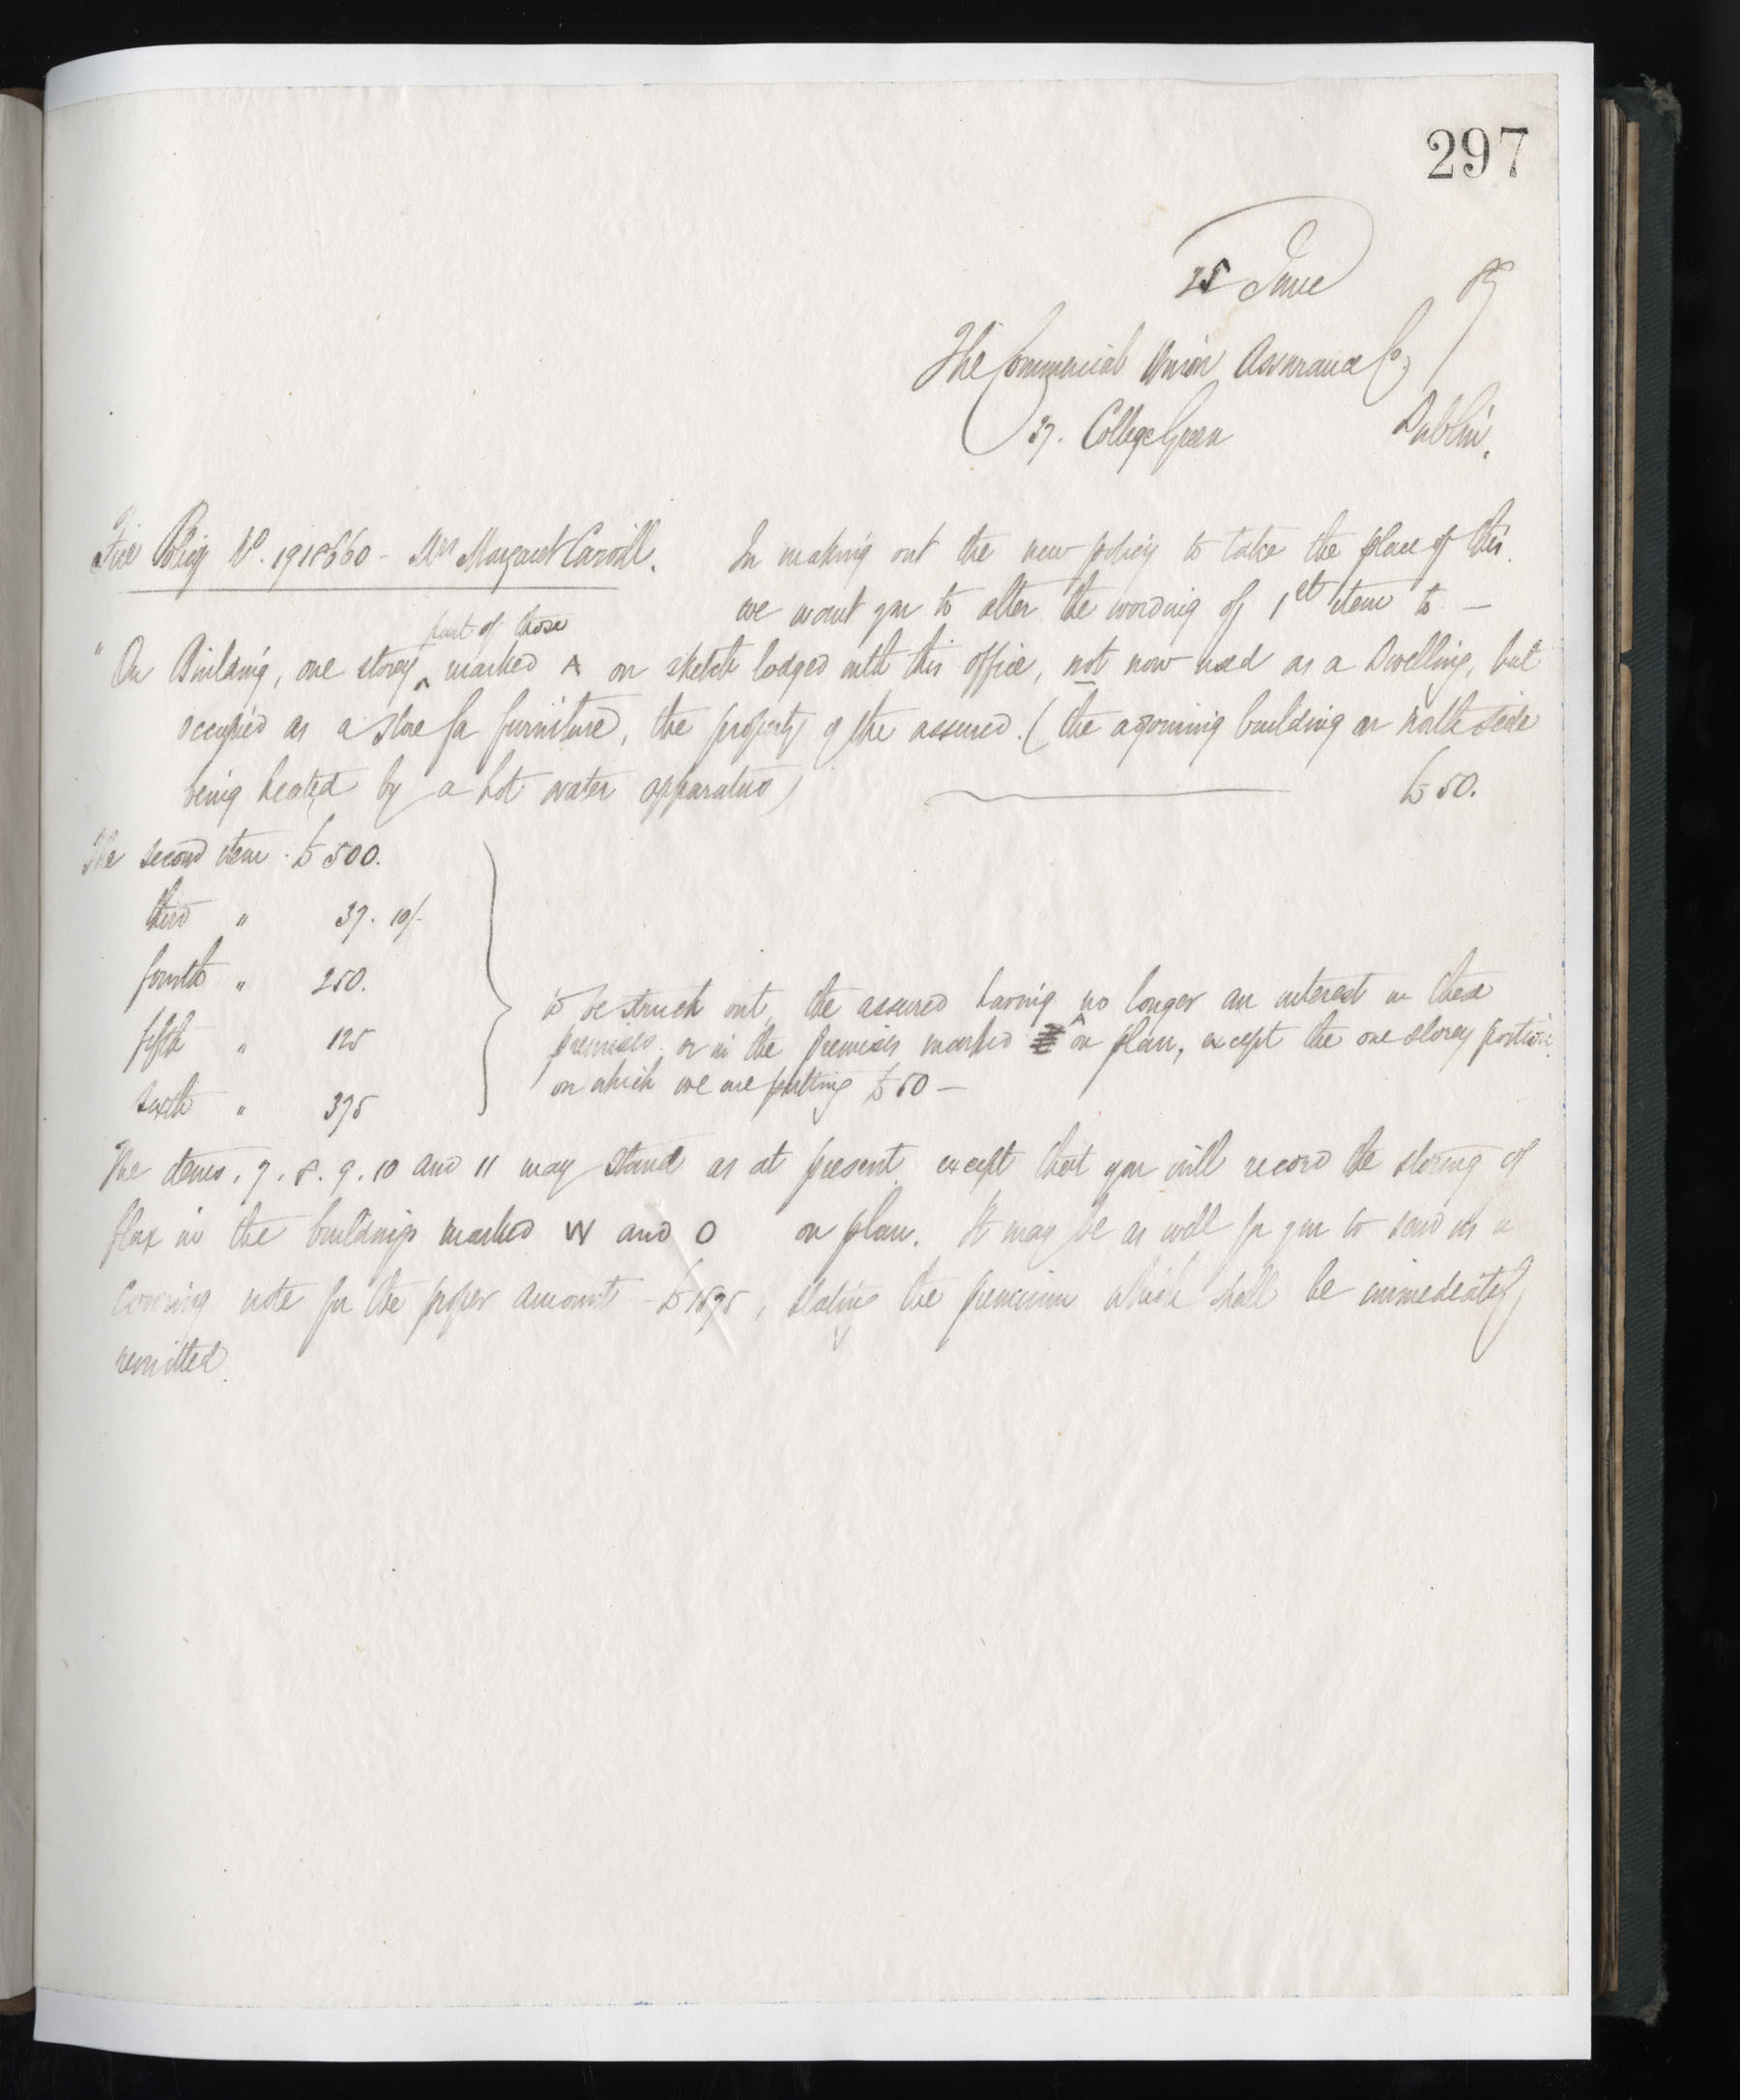 297
25 June 89
The Commercial Union Assurance Co,
37. College Green Dublin.
Fire Policy No. 1918660 - Mrs Margaret Carvill. In making out the new policy to take the place of this.
we want you to alter the wording of 1st item to. —
part of those
"On Building, one storey ^ marked A on sketch lodged with this office, not now used as a Dwelling, but
occupied as a store for furniture, the property of the assured. (the ajoining building on north side
being heated by a hot water apparatus) £50.
The second item . £500.
third " 37. 10/-
fourth " 250.
fifth " 125
sixth " 375
to be struck out, the assured having no longer an interest in these
premises, or in the premises marked A on plan, except the one storey portion
on which we are putting £50 —
The items, 7. 8. 9. 10 and 11 may stand as at present, except that you will record the storing of
flax in the buildings marked W and O on plan. It may be as well for you to send us a
Covering note for the proper amount - £1675, stating the premium which shall be immediately
remitted.